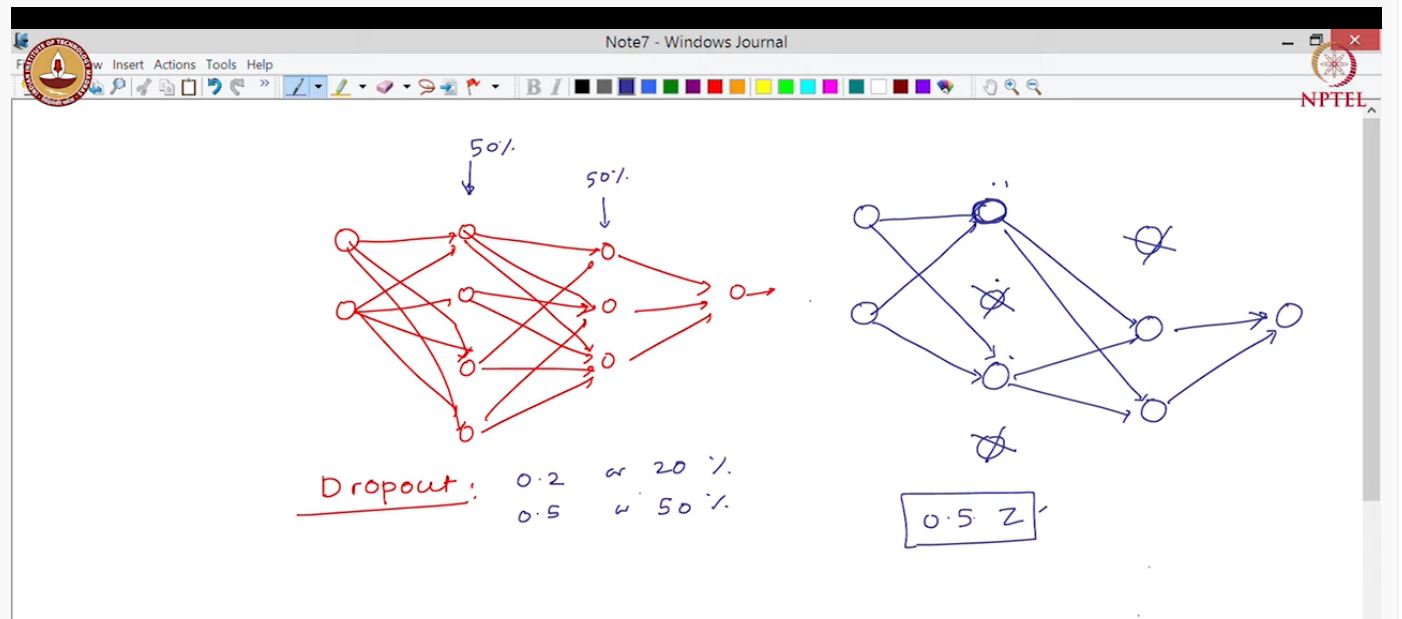 Note7 - Windows Journal
Insert Actions Tools Help
B I
NPTEL
50%
50%
Dropout:
0.2 or 20 %
0.5 or 50 %
0.5 Z